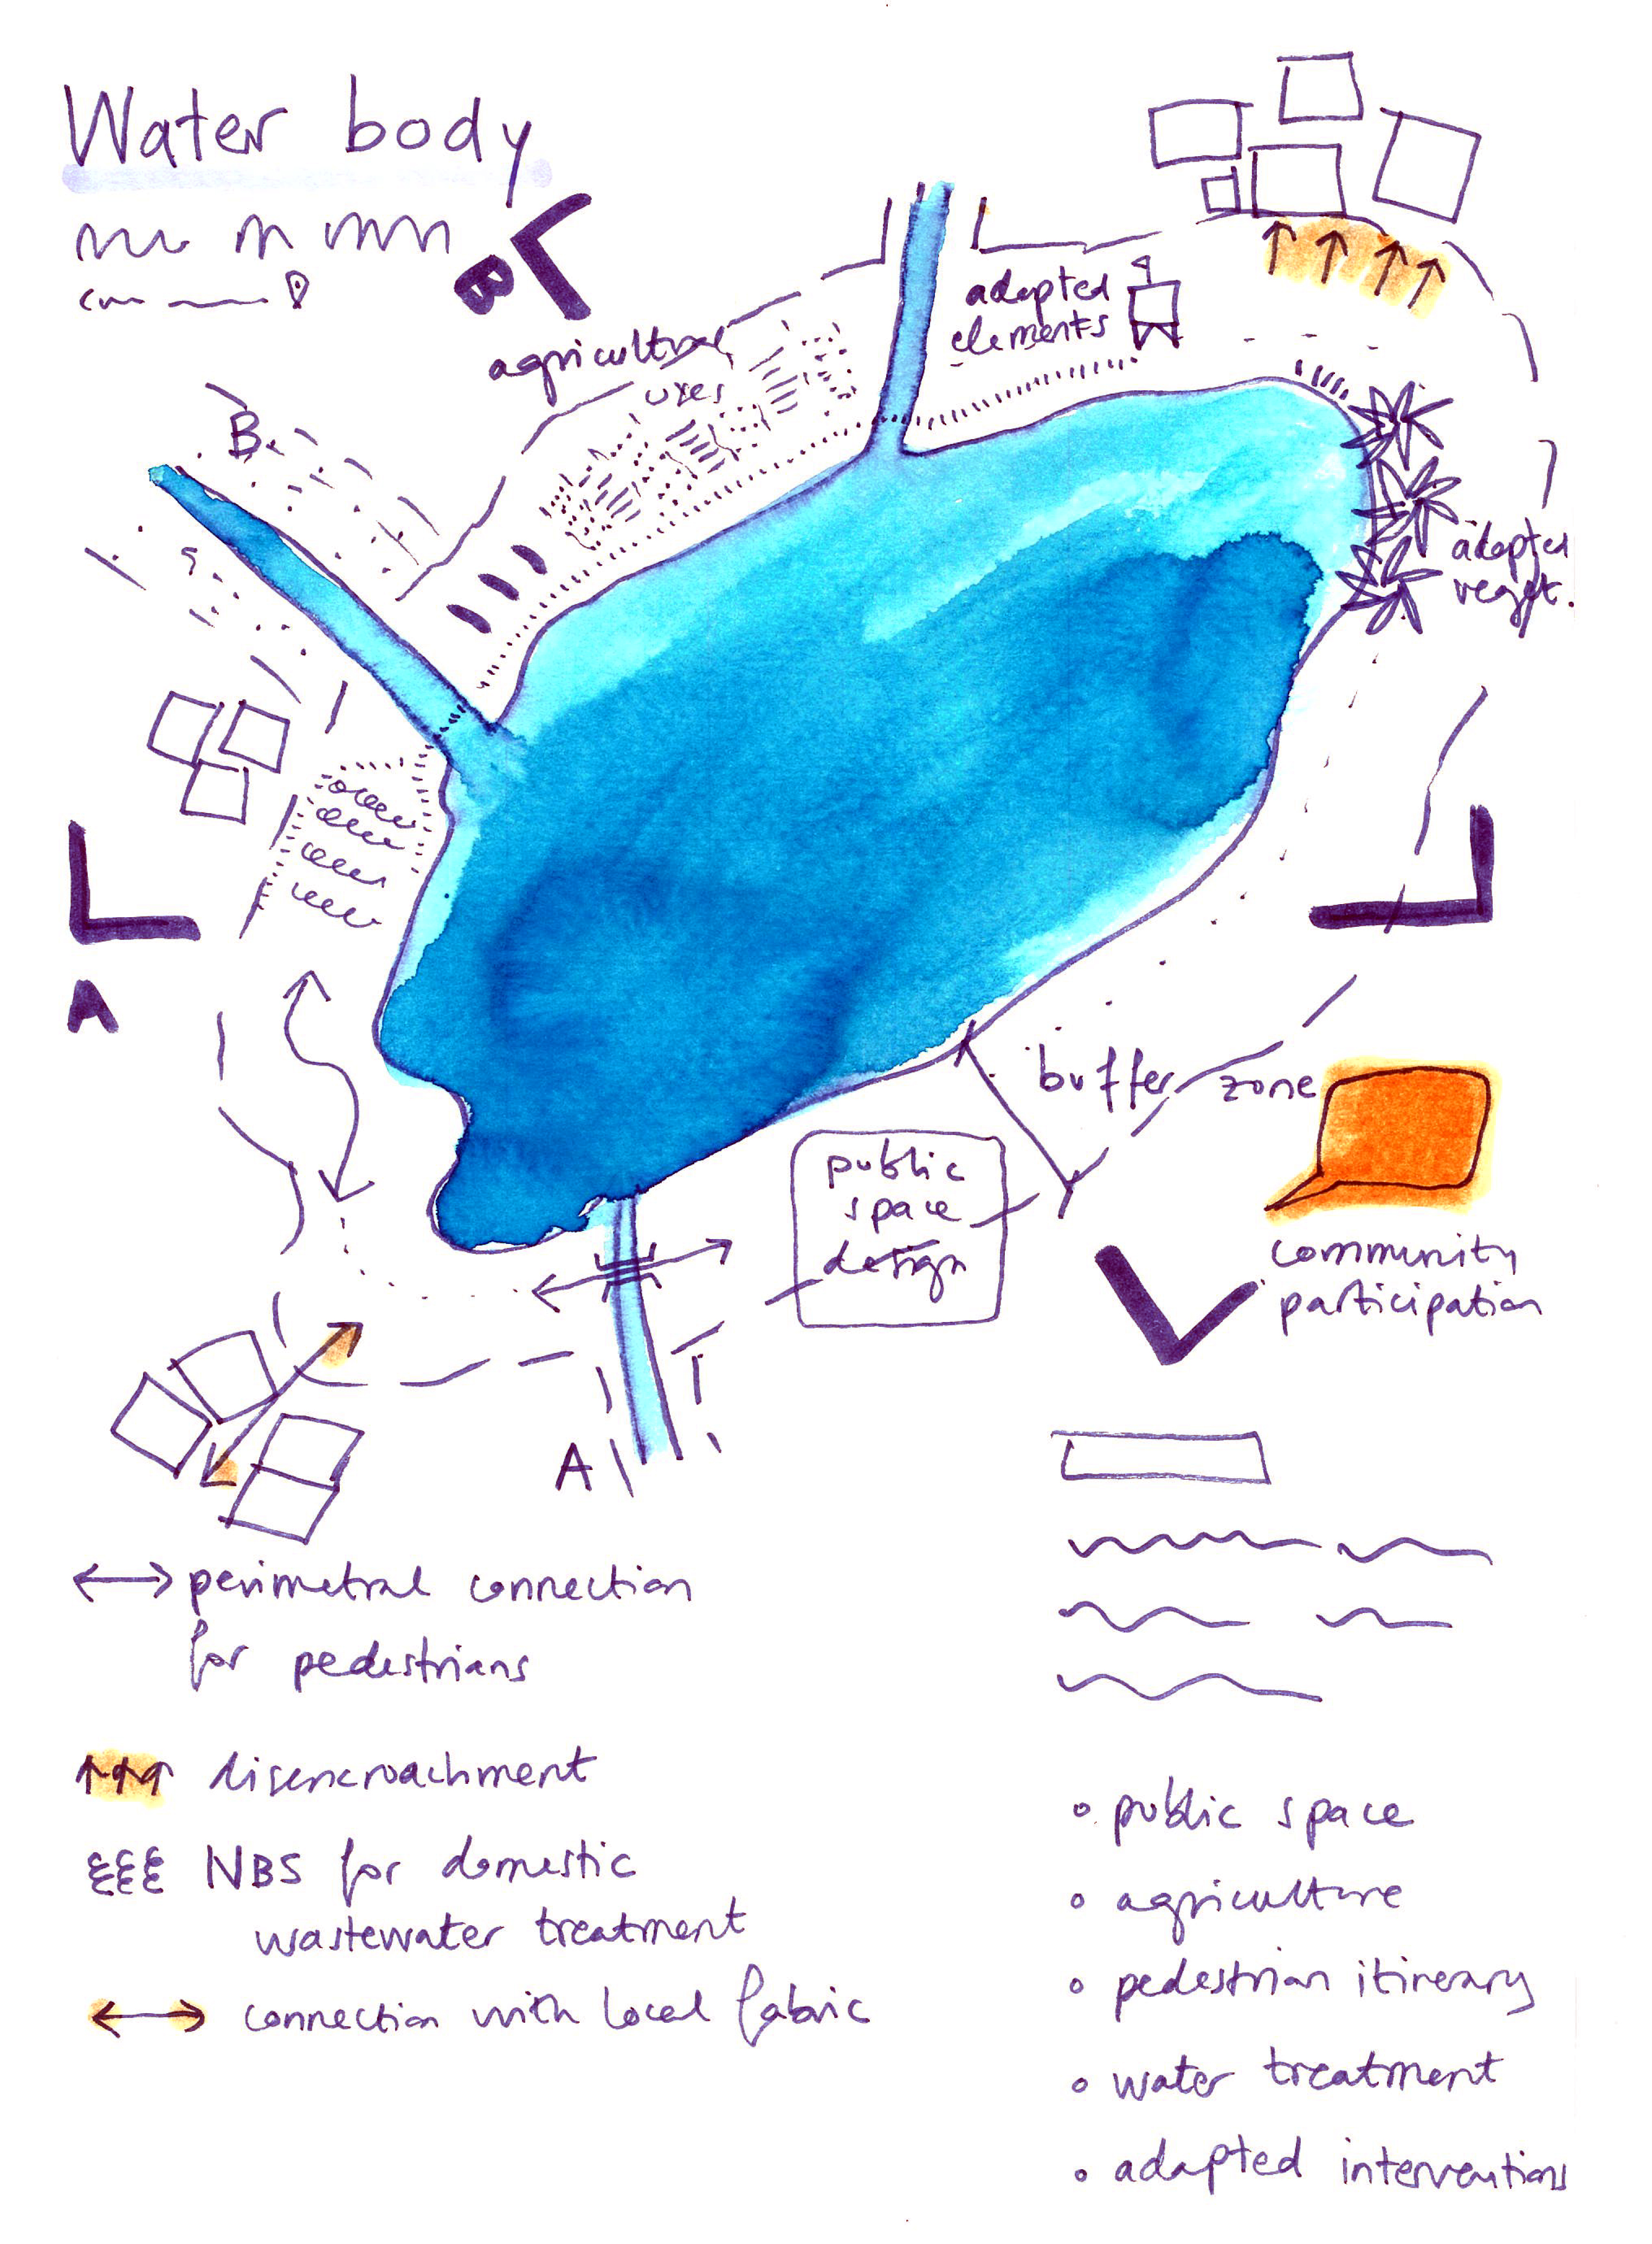 Water body
B
agricultural
uses
adapted
elements
B
adapted
veget.
A
buffer zone
public
space
design
community
participation
A
perimetral connection
for pedestrians
disencroachment
NBS for domestic
wastewater treatment
connection with local fabric
public space
agriculture
pedestrian itinerary
water treatment
adapted interventions